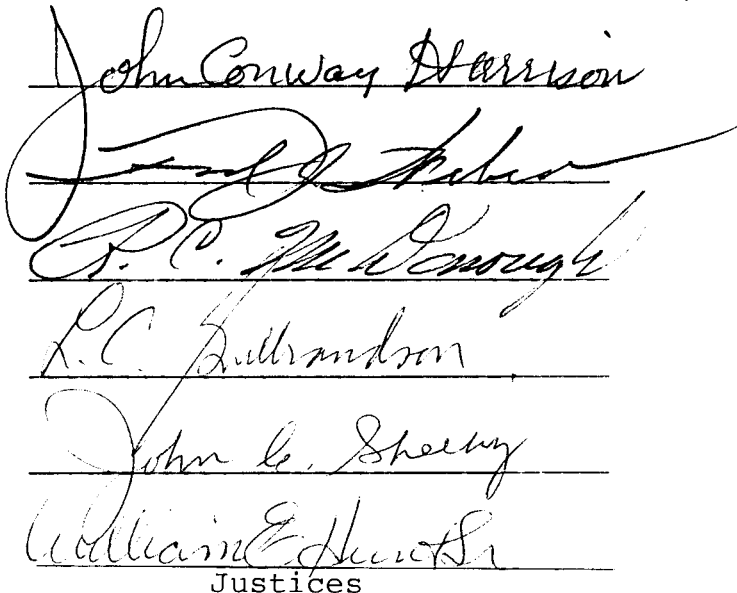 John Conway Harrison
Fred J. Weber
R. C. McDonough
L.C. Gulbrandson
John C. Sheehy
William E. Hunt Sr
Justices